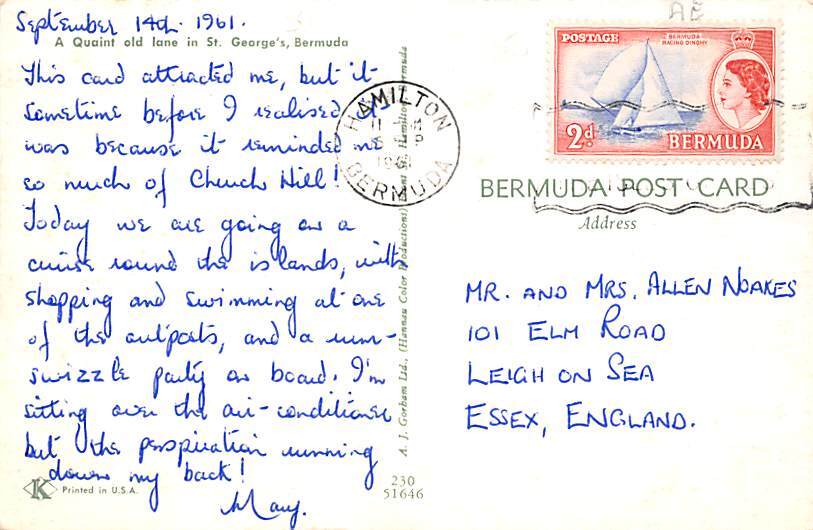 September 14th. 1961.
A Quaint old lane in St. George's, Bermuda
This card attracted me, but it
sometime before I realised it
was because it reminded me
so much of Church Hill!
Today we are going on a
cruise round the islands, with
shopping and swimming at one
of the outposts, and a rum-
swizzle party on board. I'm
sitting over the air-conditioner
but the perspiration running
down my back!
Mary.
K Printed in U.S.A.
A. J. Gorham Ltd., (Hannau Color Productions) Hamilton Bermuda
230
51646
HAMILTON
BERMUDA
AE
POSTAGE
BERMUDA
RACING DINGHY
2d
BERMUDA
BERMUDA POST CARD
Address
MR. AND MRS. ALLEN NOAKES
101 ELM ROAD
LEIGH ON SEA
ESSEX, ENGLAND.